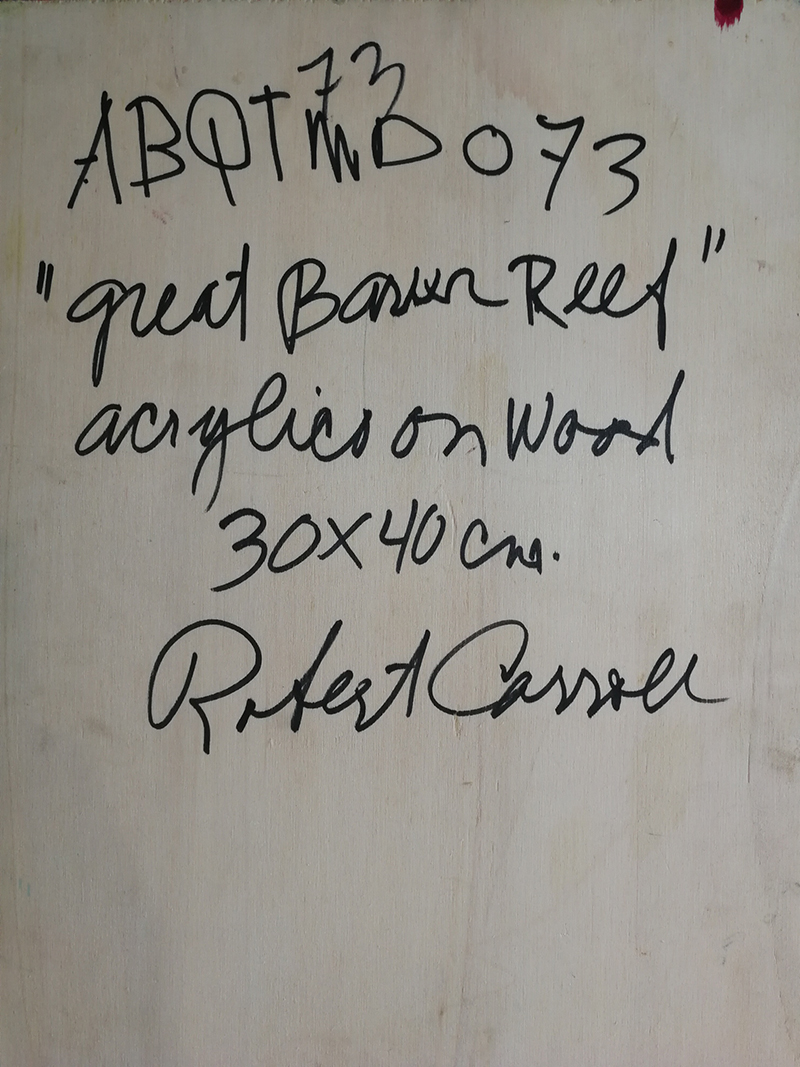 73
ABQTMD 073
"great Barrier Reef"
acrylics on Wood
30X40 cm.
Robert Carroll